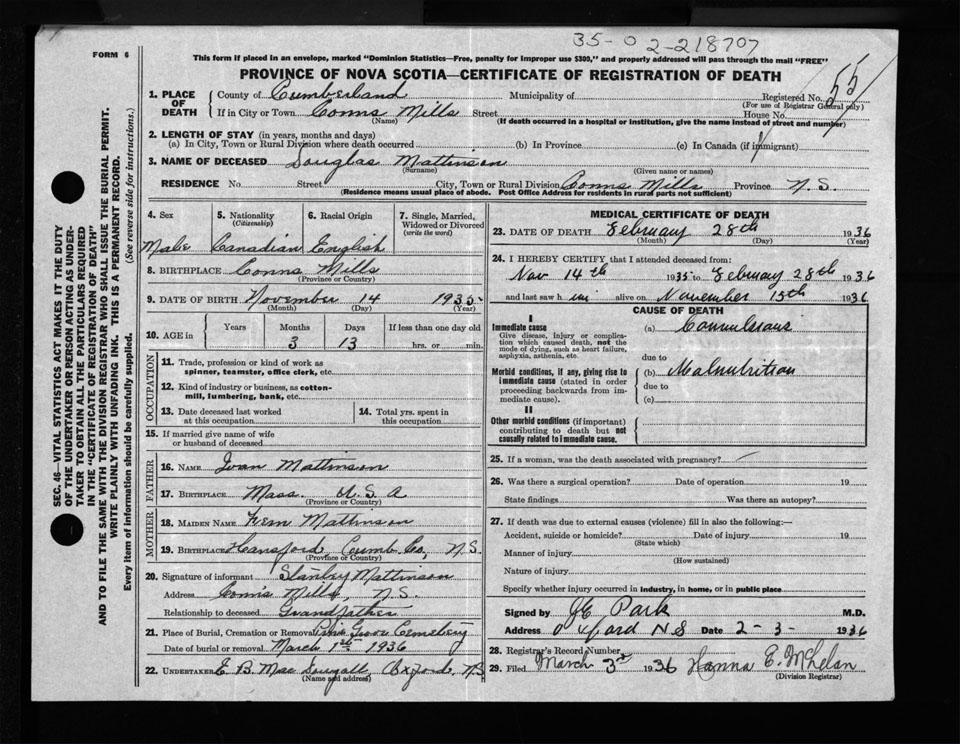 35-0 2-218707
FORM 6
This form if placed in an envelope, marked "Dominion Statistics—Free, penalty for improper use $300," and properly addressed will pass through the mail "FREE"
PROVINCE OF NOVA SCOTIA—CERTIFICATE OF REGISTRATION OF DEATH
55
1. PLACE OF DEATH County of Cumberland Municipality of Registered No.
(For use of Registrar General only)
If in City or Town Conns Mills Street House No.
(Name) (If death occurred in a hospital or institution, give the name instead of street and number)
2. LENGTH OF STAY (in years, months and days)
(a) In City, Town or Rural Division where death occurred (b) In Province (c) In Canada (if immigrant)
3. NAME OF DECEASED Douglas Mattinson
(Surname) (Given name or names)
RESIDENCE No. Street City, Town or Rural Division Conns Mills Province N.S.
(Residence means usual place of abode. Post Office Address for residents in rural parts not sufficient)
4. Sex 5. Nationality 6. Racial Origin 7. Single, Married, Widowed or Divorced
(Citizenship) (write the word)
Male Canadian English
8. BIRTHPLACE Conns Mills
(Province or Country)
9. DATE OF BIRTH November 14 1935
(Month) (Day) (Year)
10. AGE in Years Months Days If less than one day old
3 13 hrs. or min.
OCCUPATION
11. Trade, profession or kind of work as
spinner, teamster, office clerk, etc.
12. Kind of industry or business, as cotton-
mill, lumbering, bank, etc.
13. Date deceased last worked
at this occupation
14. Total yrs. spent in
this occupation
15. If married give name of wife
or husband of deceased
FATHER
16. NAME Ivan Mattinson
17. BIRTHPLACE Mass. U.S.A
(Province or Country)
MOTHER
18. MAIDEN NAME Fern Mattinson
19. BIRTHPLACE Hansford, Cumb. Co, N.S.
(Province or Country)
20. Signature of informant Stanley Mattinson
Address Conns Mills, N.S.
Relationship to deceased Grandfather
21. Place of Burial, Cremation or Removal Grove Cemetery
Date of burial or removal March 1st 1936
22. UNDERTAKER E. B. MacDougall, Oxford, N.S
(Name and address)
MEDICAL CERTIFICATE OF DEATH
23. DATE OF DEATH February 28th 1936
(Month) (Day) (Year)
24. I HEREBY CERTIFY that I attended deceased from:
Nov 14th 1935 to February 28th 1936
and last saw him alive on November 15th 1936
CAUSE OF DEATH
I
Immediate cause (a) Convulsions
Give disease, injury or complica-
tion which caused death, not the
mode of dying, such as heart failure,
asphyxia, asthenia, etc.
due to
Morbid conditions, if any, giving rise to
immediate cause (stated in order
proceeding backwards from im-
mediate cause).
(b) Malnutrition
due to
(c)
II
Other morbid conditions (if important)
contributing to death but not
causally related to immediate cause.
25. If a woman, was the death associated with pregnancy?
26. Was there a surgical operation? Date of operation 19
State findings Was there an autopsy?
27. If death was due to external causes (violence) fill in also the following:—
Accident, suicide or homicide? Date of injury 19
(State which)
Manner of injury
(How sustained)
Nature of injury
Specify whether injury occurred in industry, in home, or in public place
Signed by Park M.D.
Address Oxford NS Date 2-3- 1936
28. Registrar's Record Number
29. Filed March 3rd 1936 Hanna E. McPhelan
(Division Registrar)
SEC. 46—VITAL STATISTICS ACT MAKES IT THE DUTY
OF THE UNDERTAKER OR PERSON ACTING AS UNDER-
TAKER TO OBTAIN ALL THE PARTICULARS REQUIRED
IN THE "CERTIFICATE OF REGISTRATION OF DEATH"
AND TO FILE THE SAME WITH THE DIVISION REGISTRAR WHO SHALL ISSUE THE BURIAL PERMIT.
WRITE PLAINLY WITH UNFADING INK. THIS IS A PERMANENT RECORD.
Every item of information should be carefully supplied. (See reverse side for instructions.)